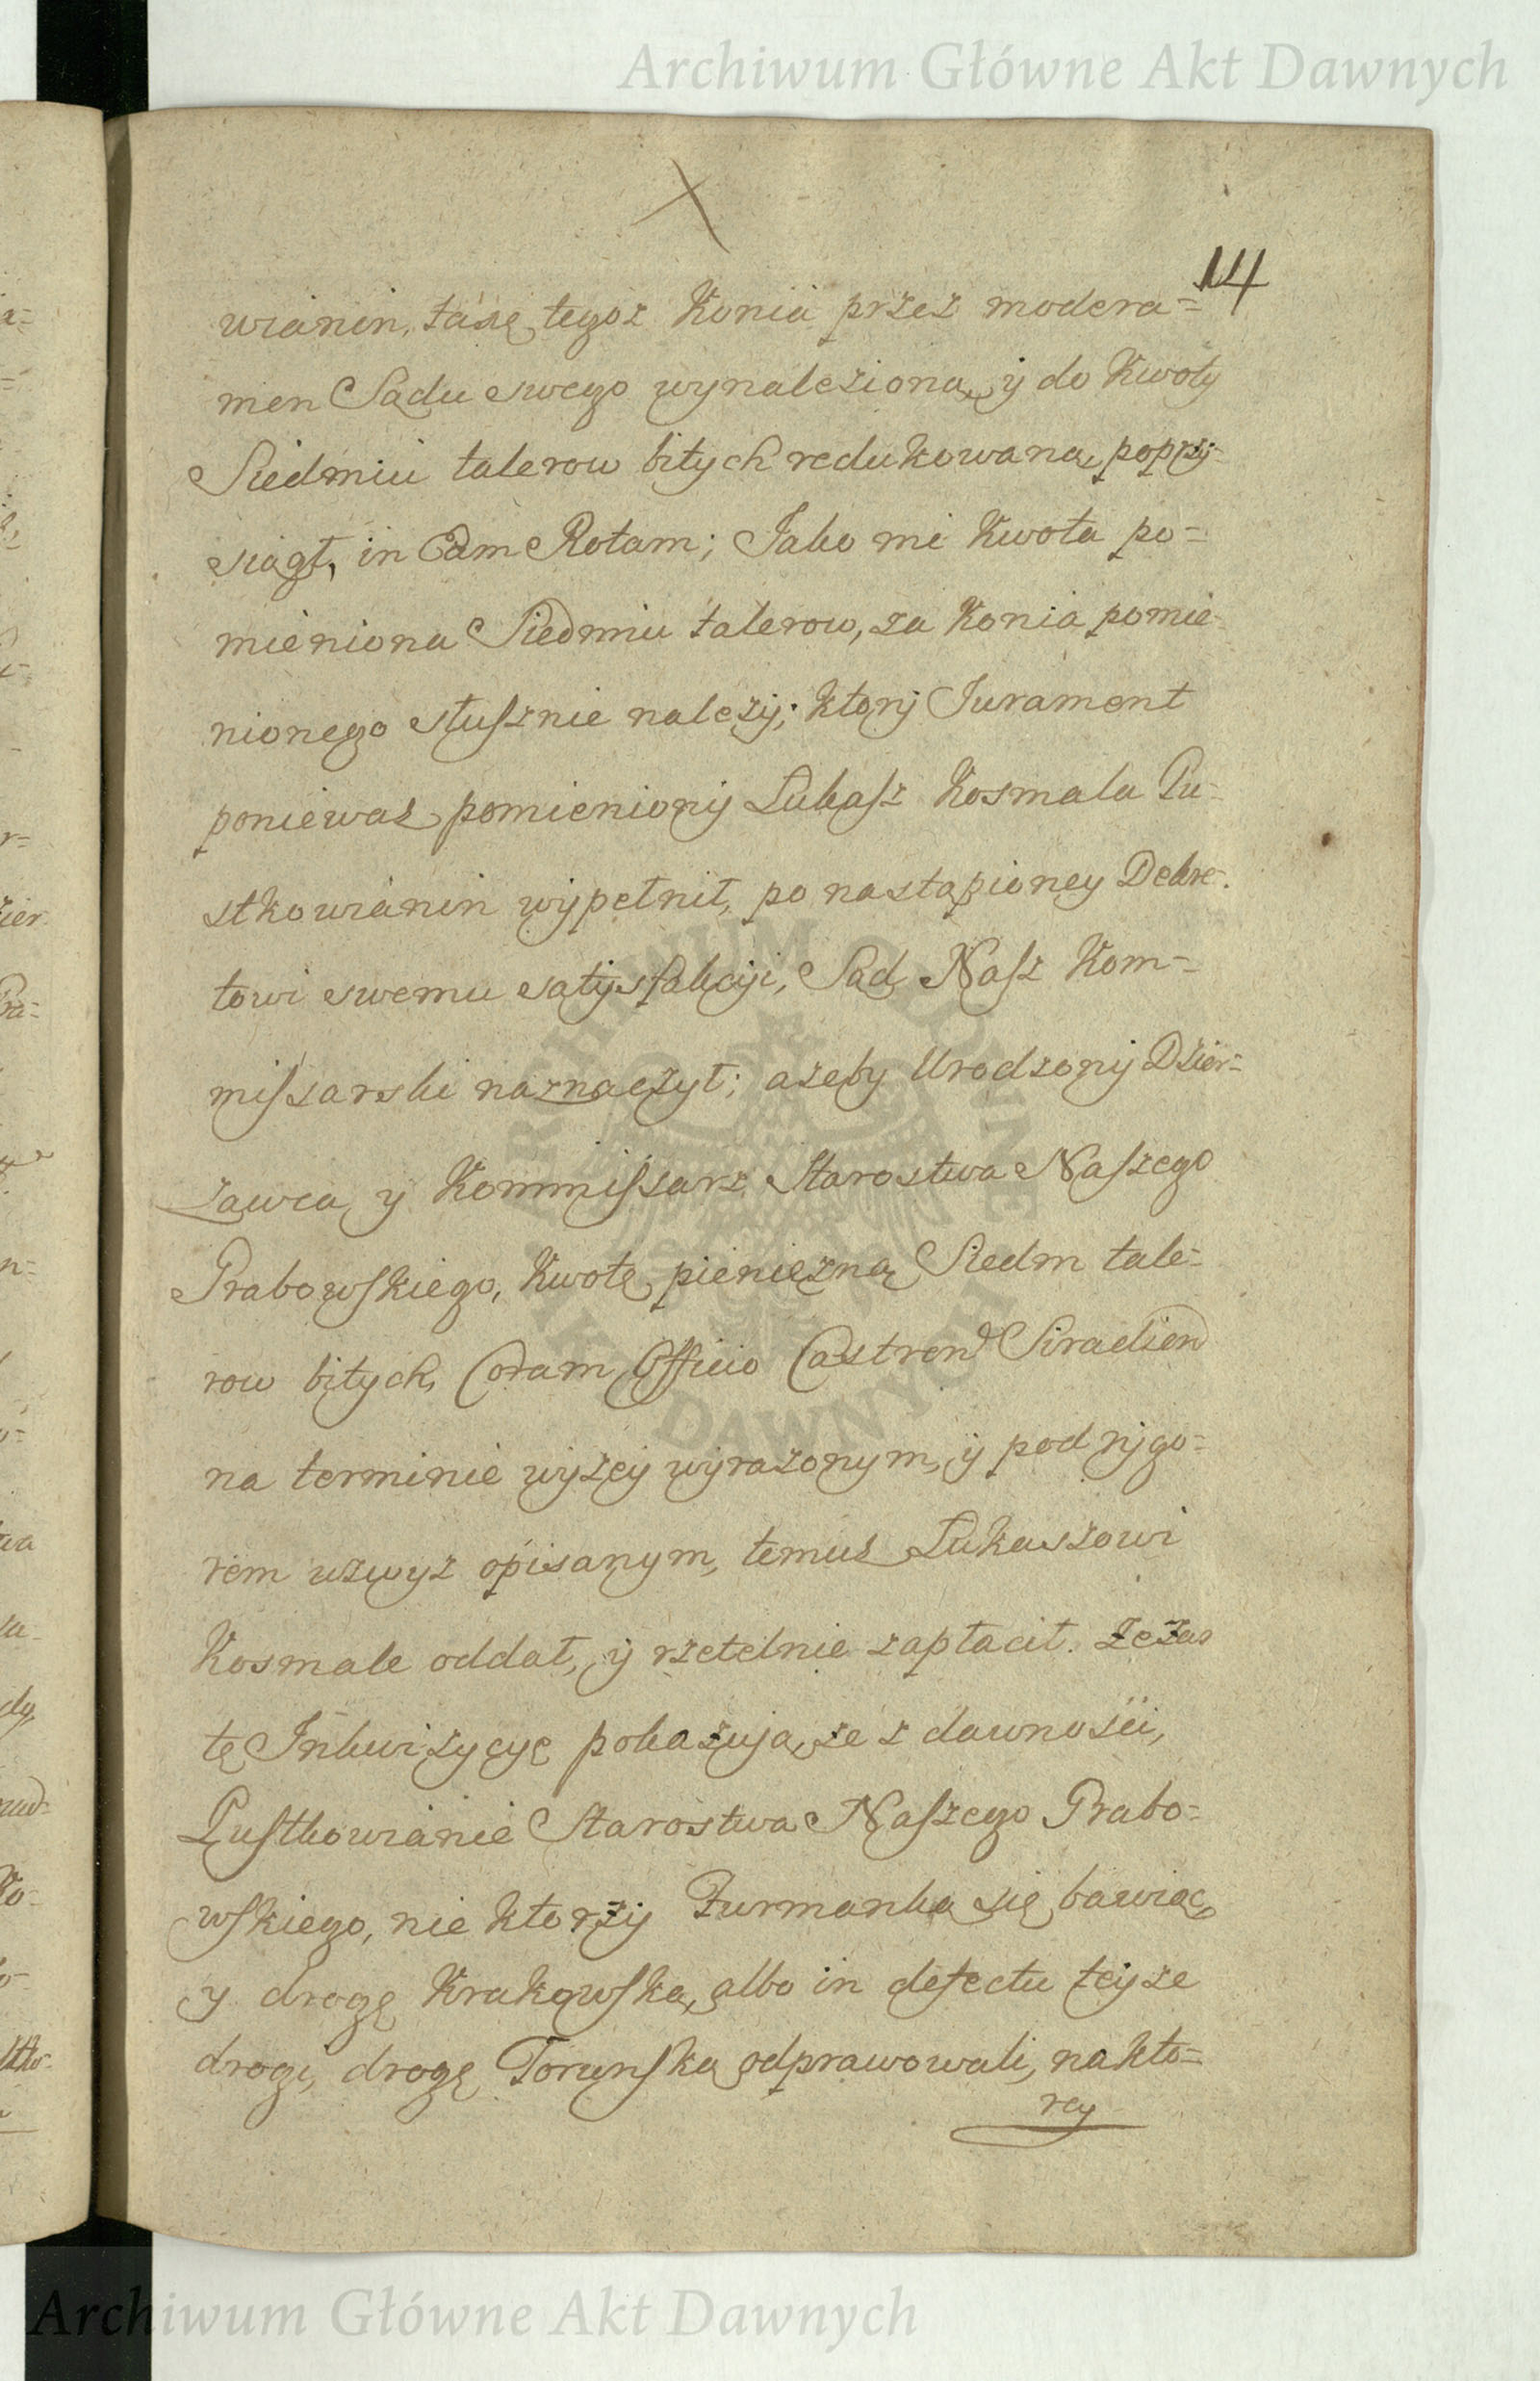 Archiwum Główne Akt Dawnych
14
wianin, taxę tegoz Konia przez modera=
men Sądu swego wynalezioną, y do Kwoty
Siedmiu talerow bitych redukowaną, poprzy-
siągł, in Eam Rotam; Jako mi Kwota po=
mieniona Siedmiu talerow, za Konia pomie-
nionego słusznie nalezy; ktory Jurament
poniewaz pomieniony Łukasz Kosmala Pu-
stkowianin wypełnił, po nastąpioney Dekre-
towi swemu satysfakcyi, Sąd Nasz Kom=
missarski naznaczył; azeby Urodzony Dzier=
zawca y Kommissarz Starostwa Naszego
Grabowskiego, Kwotę pieniezną Siedm tale=
row bitych, Coram Officio Castren Siradien
na terminie wyzey wyrazonym, y pod rygo=
rem wzwyz opisanym, temuz Łukaszowi
Kosmale oddał, y rzetelnie zapłacił. Zezas
tę Inkwizycyę pokazują, ze z dawnosci,
Pustkowianie Starostwa Naszego Grabo=
wskiego, nie ktorzy Furmanką się bawiąc,
y drogę Krakowską, albo in defectu teyze
drogi, drogę Torunską odprawowali, na kto=
rey
ARCHIWUM GŁÓWNE AKT DAWNYCH
Archiwum Główne Akt Dawnych